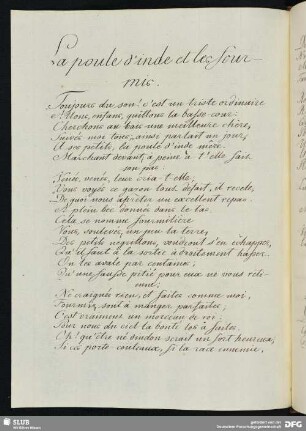 La poule d'inde et les four-
mis.
Toujours du son! c'est un triste ordinaire
Allons, enfans, quittons la basse cour:
Cherchons au bois une meilleure chère,
Suivés moi tous; ainsi parlait un jour,
A ses petits, la poule d'inde mère.
Marchant devant, à peine a t'elle fait
son pas:
Venés, venés, leur cria t'elle;
Vous voyés ce gazon tout défait, il recele,
De quoi nous aprêter un excellent repas.
A plein bec donnés dans le tas
Cela se nomme fourmilière
Vous soulevés, un peu la terre,
Des petits negrillons, voudront s'en échapper,
Qu'il faut à la sortie adroitement haper.
On les avale par centaine;
Qu'une fausse pitié pour eux ne vous retie-
nne;
Ne craignés rien, et faites comme moi,
Fourmis, sont à manger, parfaites;
C'est vraiment un morceau de roi;
Pour nous du ciel la bonté les a faites,
Oh! qu'être né dindon serait un sort heureux;
Si ces porte couteaux, si la race ennemie,
SLUB
DFG